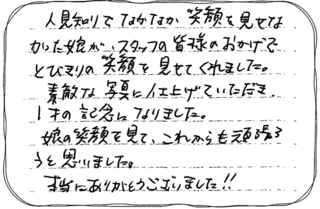 人見知りでなかなか笑顔を見せな
かった娘が、スタッフの皆様のおかげで
とびきりの笑顔を見せてくれました。
素敵な写真に仕上げていただき、
1才の記念になりました。
娘の笑顔を見て、これからも頑張ろ
うと思いました。
本当にありがとうございました!!